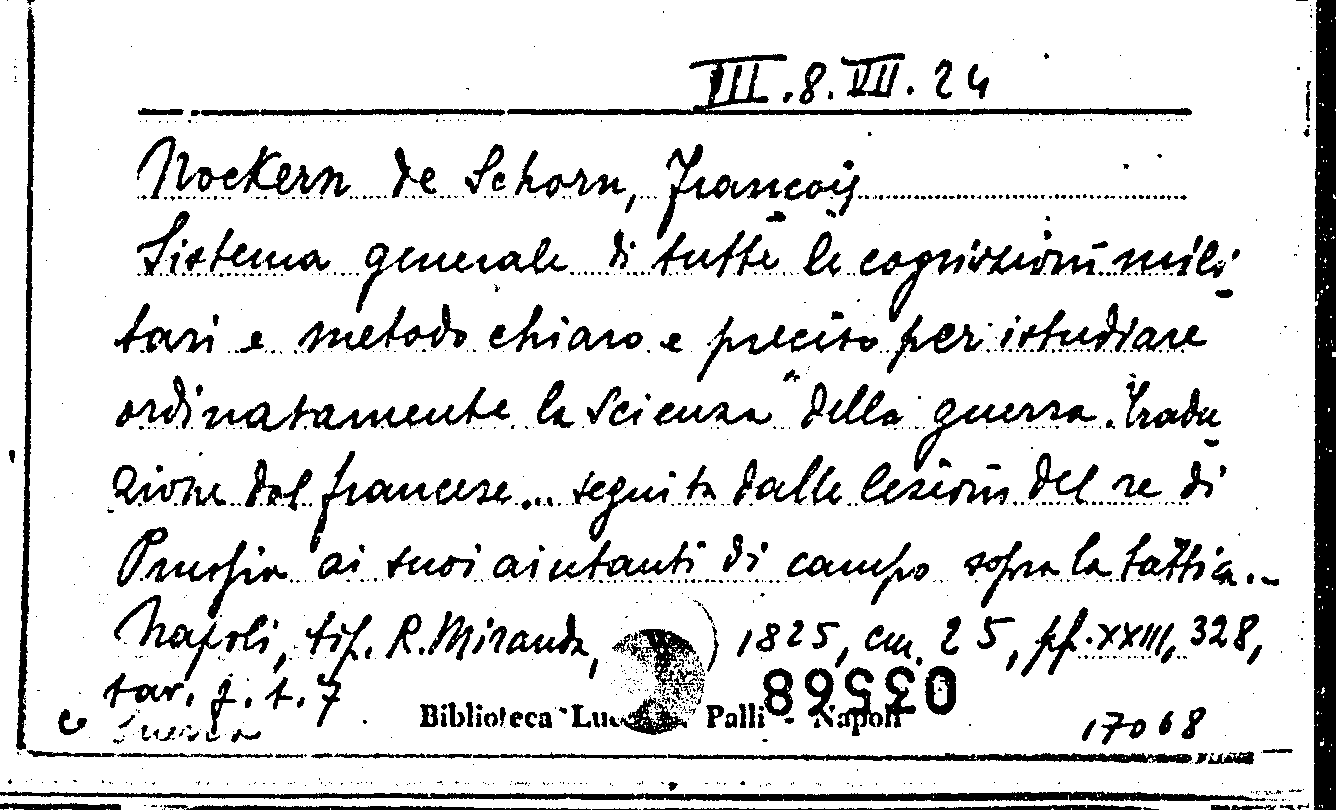 III.8.VII.24
Nockern de Schorn, Francois
Sistema generale di tutte le cognizioni mili
tari e metodo chiaro e preciso per istudiare
ordinatamente la scienza della guerra. Tradu
zione dal francese... seguita dalle lezioni del re di
Prussia ai suoi aiutanti di campo sopra la tattica...
Napoli, tip. R. Miranda, 1825, cm. 25, pp. XXIII, 328,
tav. f. t. 7
Guerra
Biblioteca Palli - Napoli
03568
17068